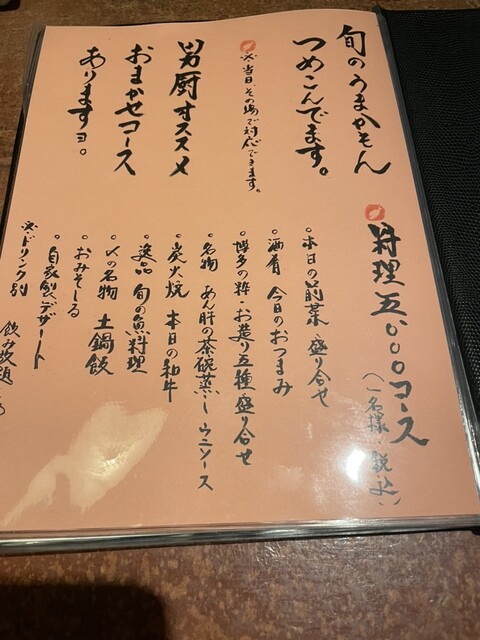 旬のうまかもん
つめこんでます。
※当日、その場で対応できます。
男厨オススメ
おまかせコース
ありますョ。
料理五〇〇〇コース
（一名様・税込）
○本日の前菜 盛り合せ
○酒肴 今日のおつまみ
○博多の粋・お造り五種盛り合せ
○名物 あん肝の茶碗蒸し ウニソース
○炭火焼 本日の和牛
○逸品 旬の魚料理
○〆の名物 土鍋飯
○おみそしる
○自家製デザート
※ドリンク別
飲み放題